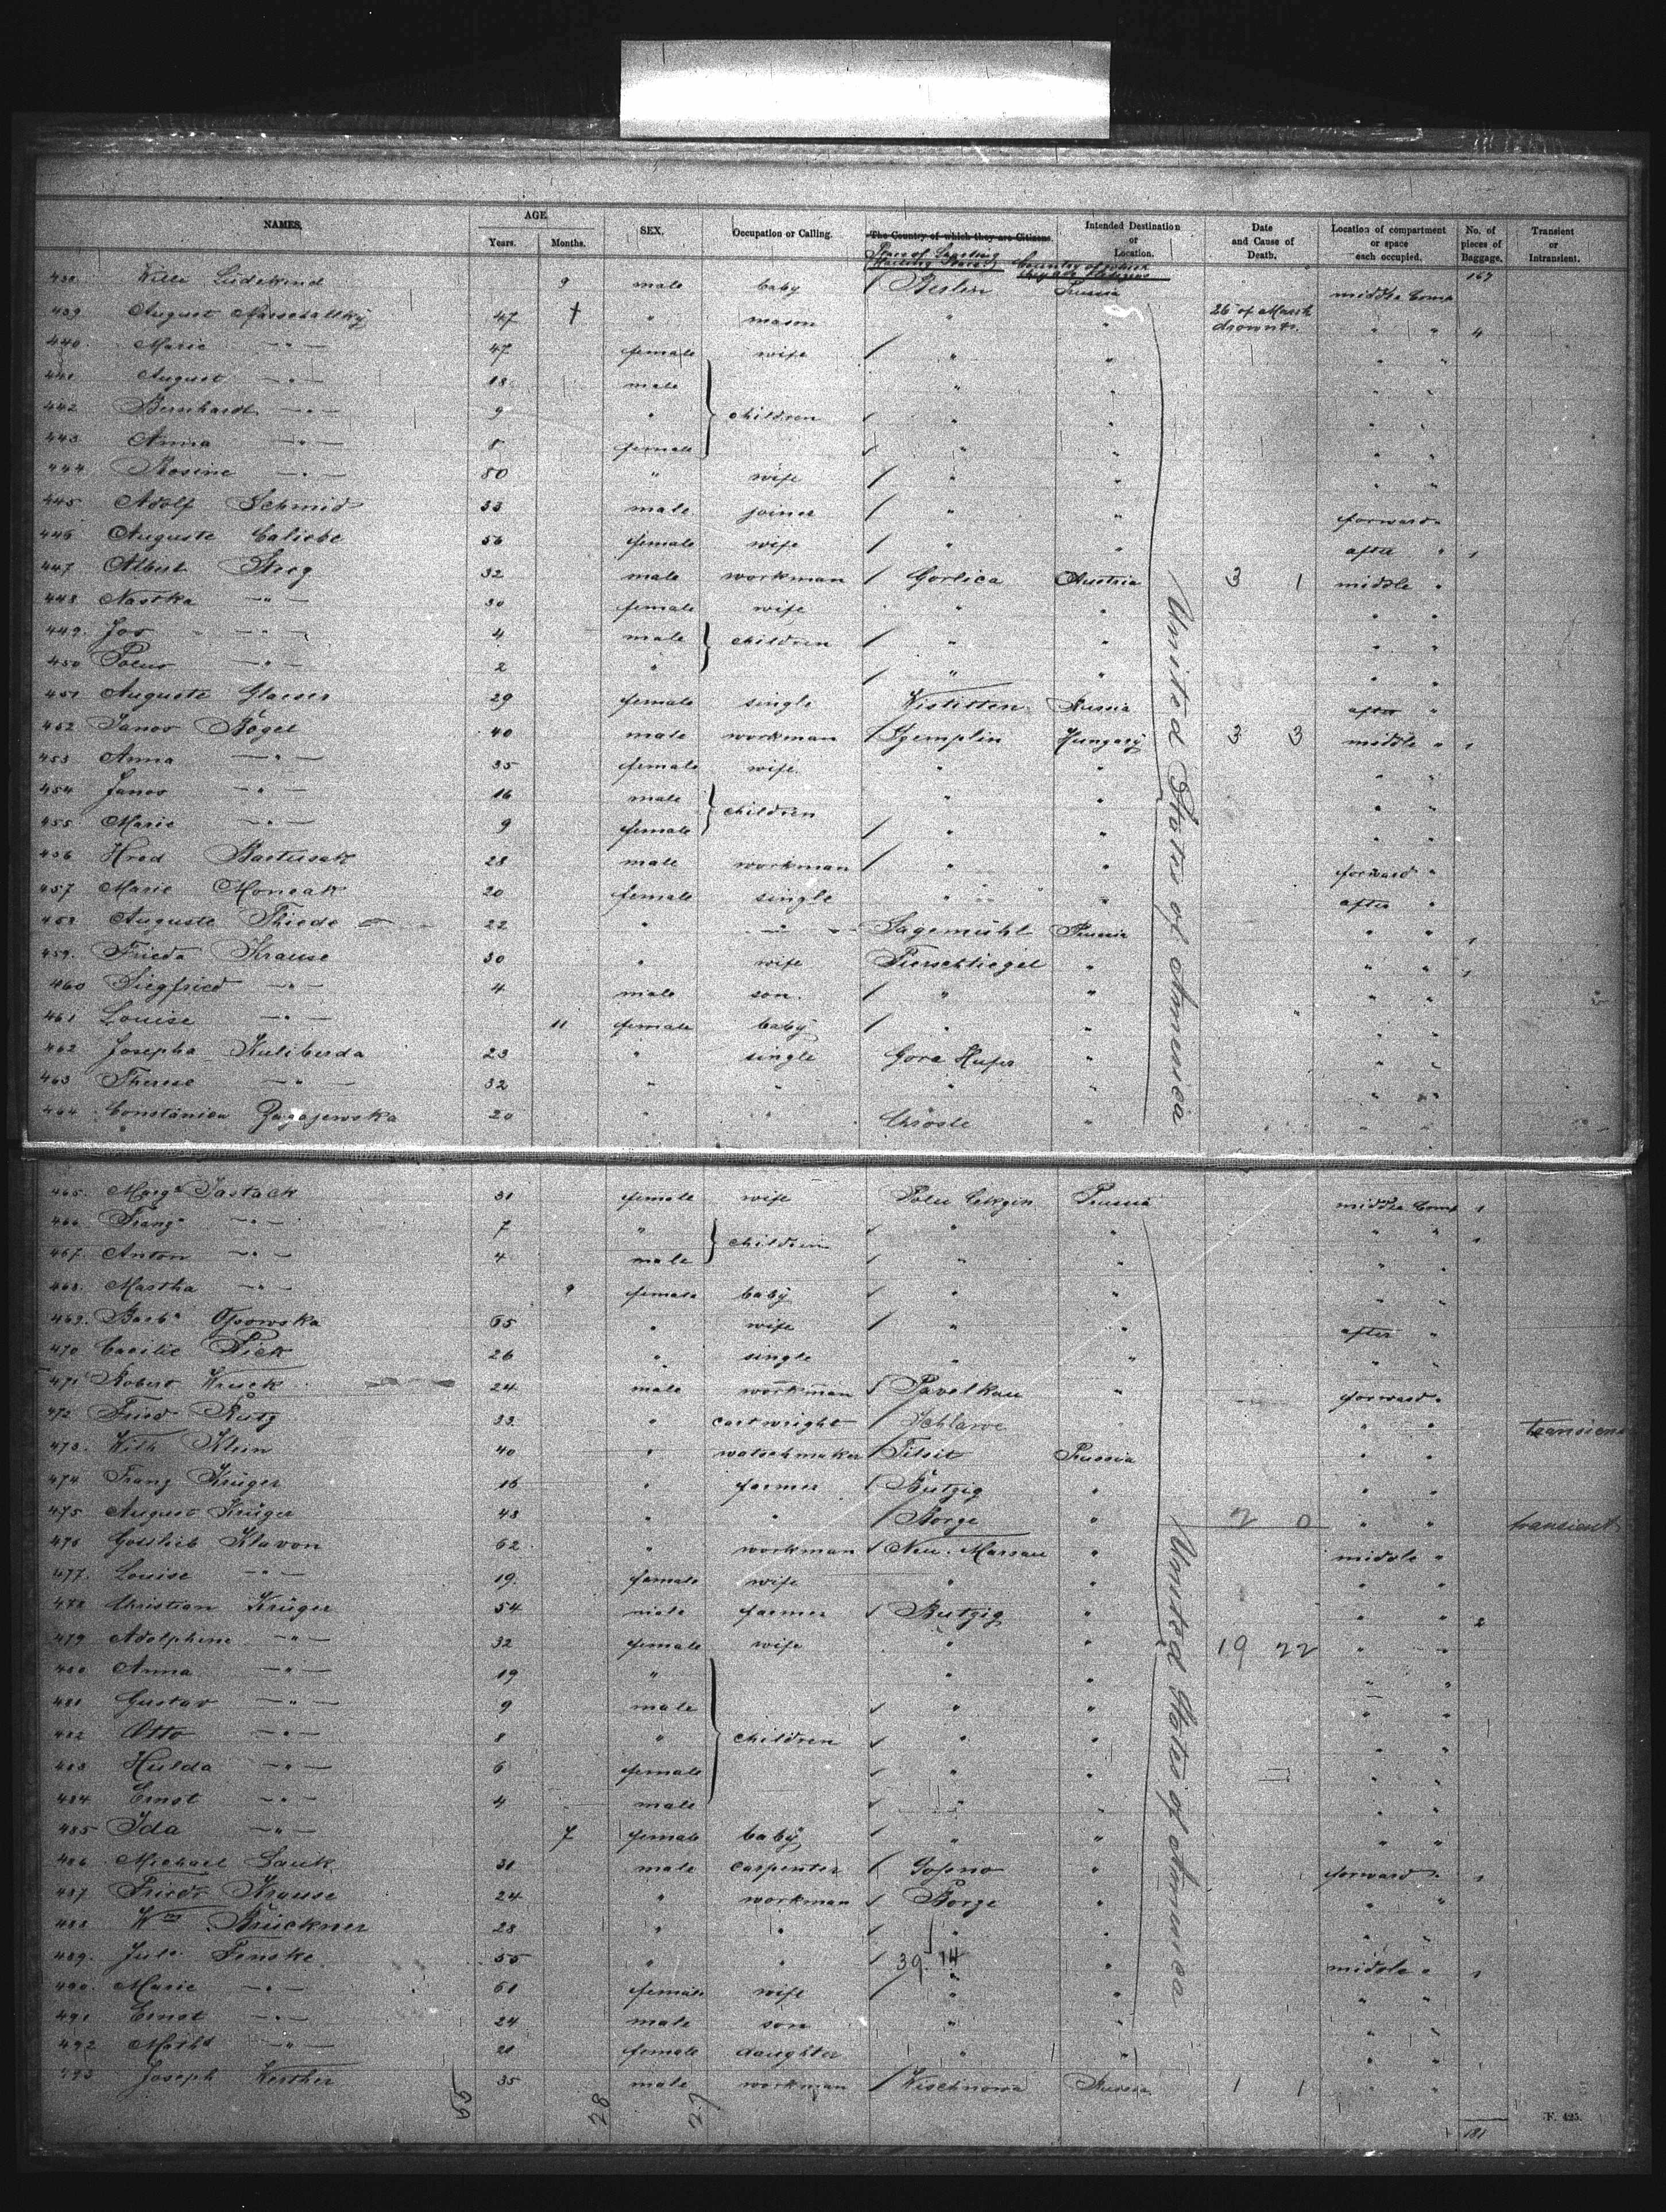 NAMES. AGE. SEX. Occupation or Calling. The Country of which they are Citizens. Intended Destination or Location. Date and Cause of Death. Location of compartment or space each occupied. No. of pieces of Baggage. Transient or Intransient.
Years. Months.
Place of Country of which
167
438 Willi Lüdekind 9 male baby / Berlin Prussia middle Comp
439 August 47 † " mason " " 26 of March " " 4
440 Marie —"— 47 female wife / " " " "
441 August —"— 18 male " " " "
442 Bernhardt —"— 9 " children / " " " "
443 Anna —"— 8 female / " " " "
444 Rosine —"— 80 " wife / " " " "
445 Adolf Schmid 33 male joiner / " " forward "
446 Auguste Caliebe 56 female wife / " " after " 1
447 Albert 32 male workman / Gorlica Austria 3 1 middle "
448 Nastka —"— 30 female wife " " " "
449. Jos —"— 4 male children / " " " "
450 —"— 2 " / " " " "
451 Auguste Glaeser 29 female single Russia after "
452 Janos Bögel 40 male workman / Hungary 3 3 middle " 1
453 Anna —"— 35 female wife " " " "
454 Janos —"— 16 male children " " " "
455 Marie —"— 9 female / " " " "
456 Bartusak 28 male workman / " " forward "
457 Marie Moncak 20 female single " " after "
458 Auguste Thiede 22 " —"— Sagemühl Prussia " " 1
459. Frieda Krause 30 " wife Tierschtiegel " " " 1
460 Siegfried —"— 4 male son / " " " "
461 Louise —"— 11 female baby / " " " "
462 Josepha Kuliberda 23 " single Gora " " "
463 Therese —"— 32 " " " " " "
464 Constancia Zagajewska 20 " " " " "
465. 31 female wife Prussia middle Comp 1
466 Franz —"— 7 " children / " " " " 1
467. Anton —"— 4 male / " " " "
468. Martha —"— 9 female baby / " " " "
469. 65 " wife / " " after "
470 Caecilie Pick 26 " single " " " "
471 Robert Kruck 24 male workman / Pavelkau " forward "
472 Fried. 33 " cartwright / Schlawe " " " transient
473. Wilh Klein 40 " watschmaker / Tilsit Prussia " "
474 Franz Krüger 16 " farmer / Butzig " " "
475 August Krüger 48 " " / Borge " 2 0 " " transient
476 Gottlieb Klavon 62 " workman / Neu. Massau " middle "
477. Louise —"— 19. female wife " " " "
478 Christian Krüger 54 male farmer / Butzig " " " 2
479 Adolphine —"— 32 female wife " " 19 22 " "
480 Anna —"— 19 " " " " "
481 Gustav —"— 9 male / " " " "
482 Otto —"— 8 " children / " " " "
483 Hulda —"— 6 female / " " " "
484 Ernst —"— 4 male / " " " "
485 Ida —"— 7 female baby / " " " "
486 Michael 31 male carpenter / " forward " 1
487 Friedr Krause 24 " workman / Borge " " "
488 Wm Brückner 28 " " / " " "
489. Jul. Fenske 55 " " / 39. 14 " middle " 1
490. Marie —"— 61 female wife / " " " "
491 Ernst —"— 24 male son " " " "
492 Math —"— 21 female daughter " " " "
493 Joseph Werther 35 male workman / Wischnowa Russia 1 1 " "
United States of America
United States of America
28 27
F. 425.
181